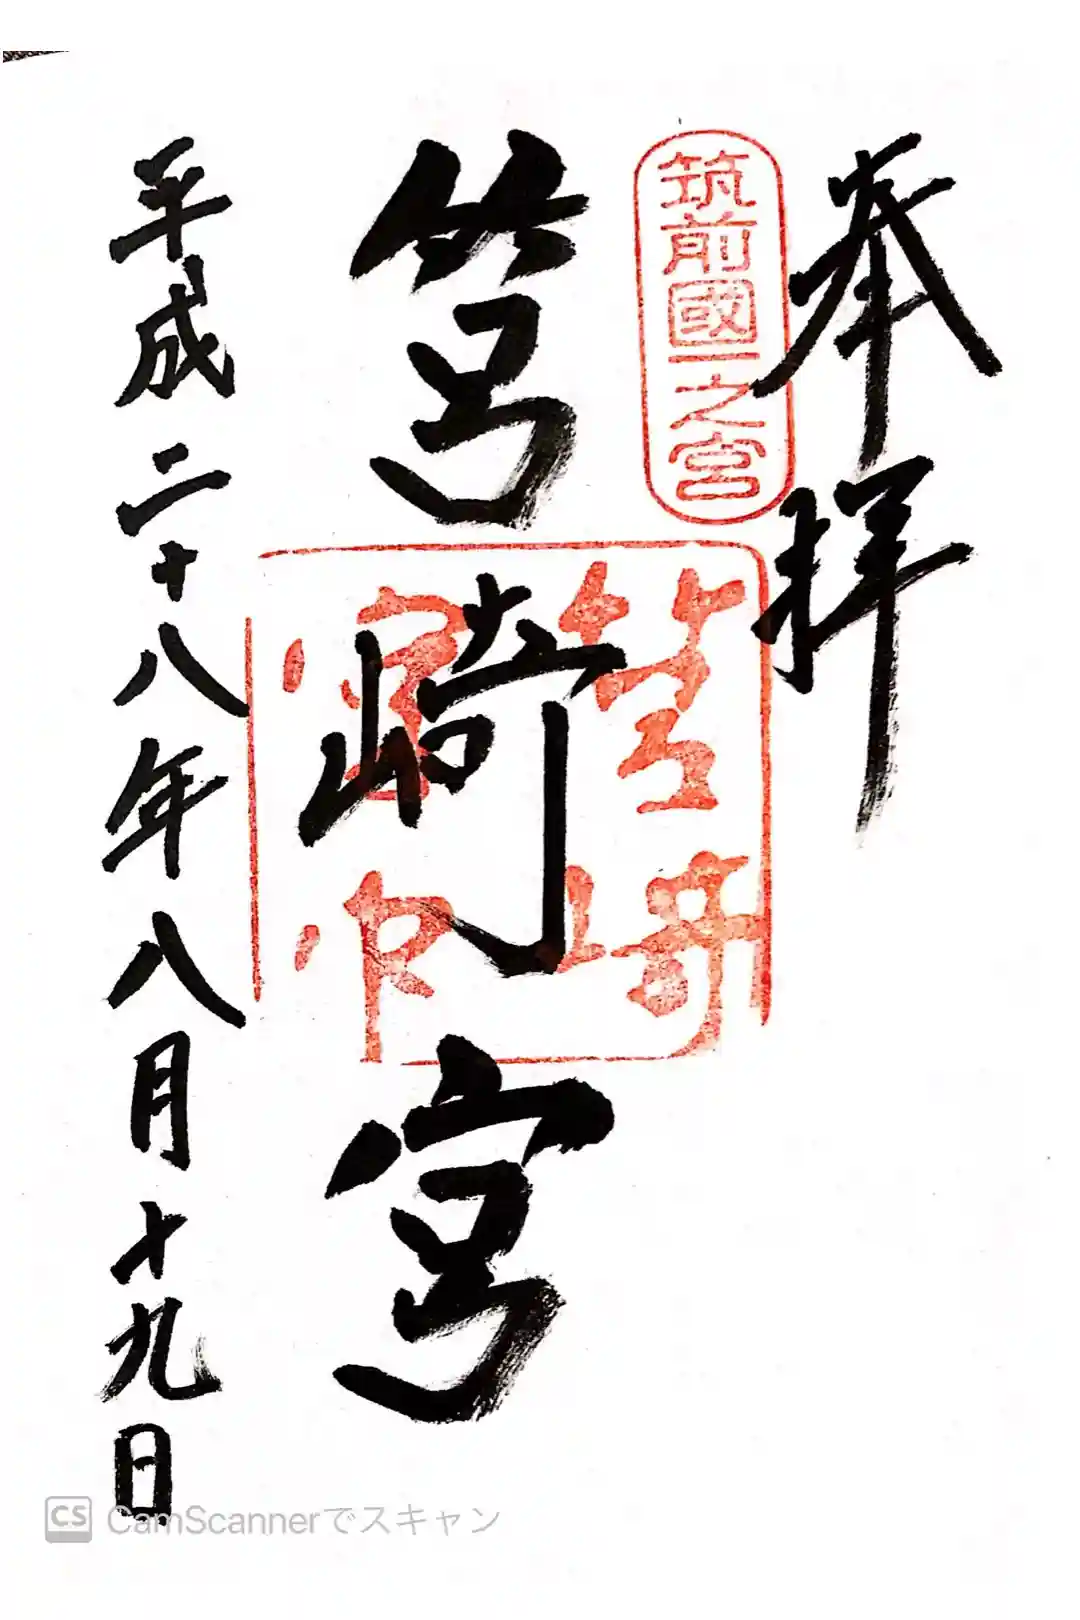 奉拝
筑前國一之宮
筥崎宮
筥崎
宮印
平成二十八年八月十九日
CS CamScannerでスキャン